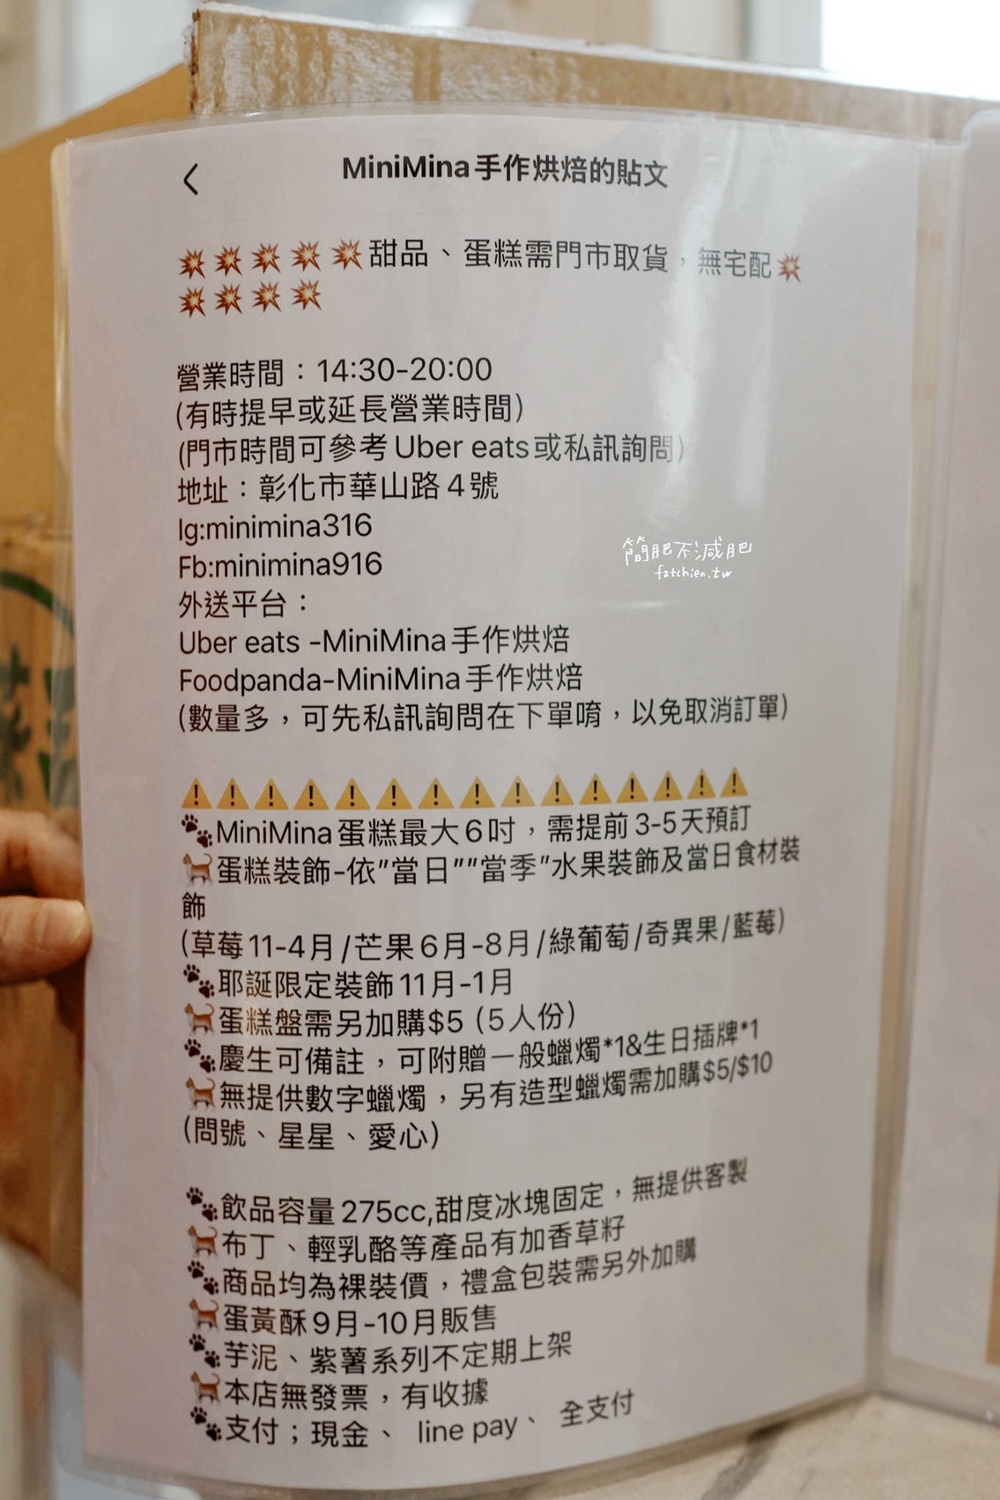 MiniMina手作烘焙的貼文
💥💥💥💥💥甜品、蛋糕需門市取貨，無宅配💥
💥💥💥💥
營業時間：14:30-20:00
(有時提早或延長營業時間)
(門市時間可參考Uber eats或私訊詢問)
地址：彰化市華山路4號
Ig:minimina316
Fb:minimina916
外送平台：
Uber eats -MiniMina手作烘焙
Foodpanda-MiniMina手作烘焙
(數量多，可先私訊詢問在下單唷，以免取消訂單)
⚠️⚠️⚠️⚠️⚠️⚠️⚠️⚠️⚠️⚠️⚠️⚠️⚠️⚠️
🐾MiniMina蛋糕最大6吋，需提前3-5天預訂
🐈蛋糕裝飾-依"當日""當季"水果裝飾及當日食材裝
飾
(草莓11-4月/芒果6月-8月/綠葡萄/奇異果/藍莓)
🐾耶誕限定裝飾11月-1月
🐈蛋糕盤需另加購$5 (5人份)
🐾慶生可備註，可附贈一般蠟燭*1&生日插牌*1
🐈無提供數字蠟燭，另有造型蠟燭需加購$5/$10
(問號、星星、愛心)
🐾飲品容量275cc,甜度冰塊固定，無提供客製
🐈布丁、輕乳酪等產品有加香草籽
🐾商品均為裸裝價，禮盒包裝需另外加購
🐈蛋黃酥9月-10月販售
🐾芋泥、紫薯系列不定期上架
🐈本店無發票，有收據
🐾支付；現金、 line pay、 全支付
簡肥不減肥
fatchien.tw